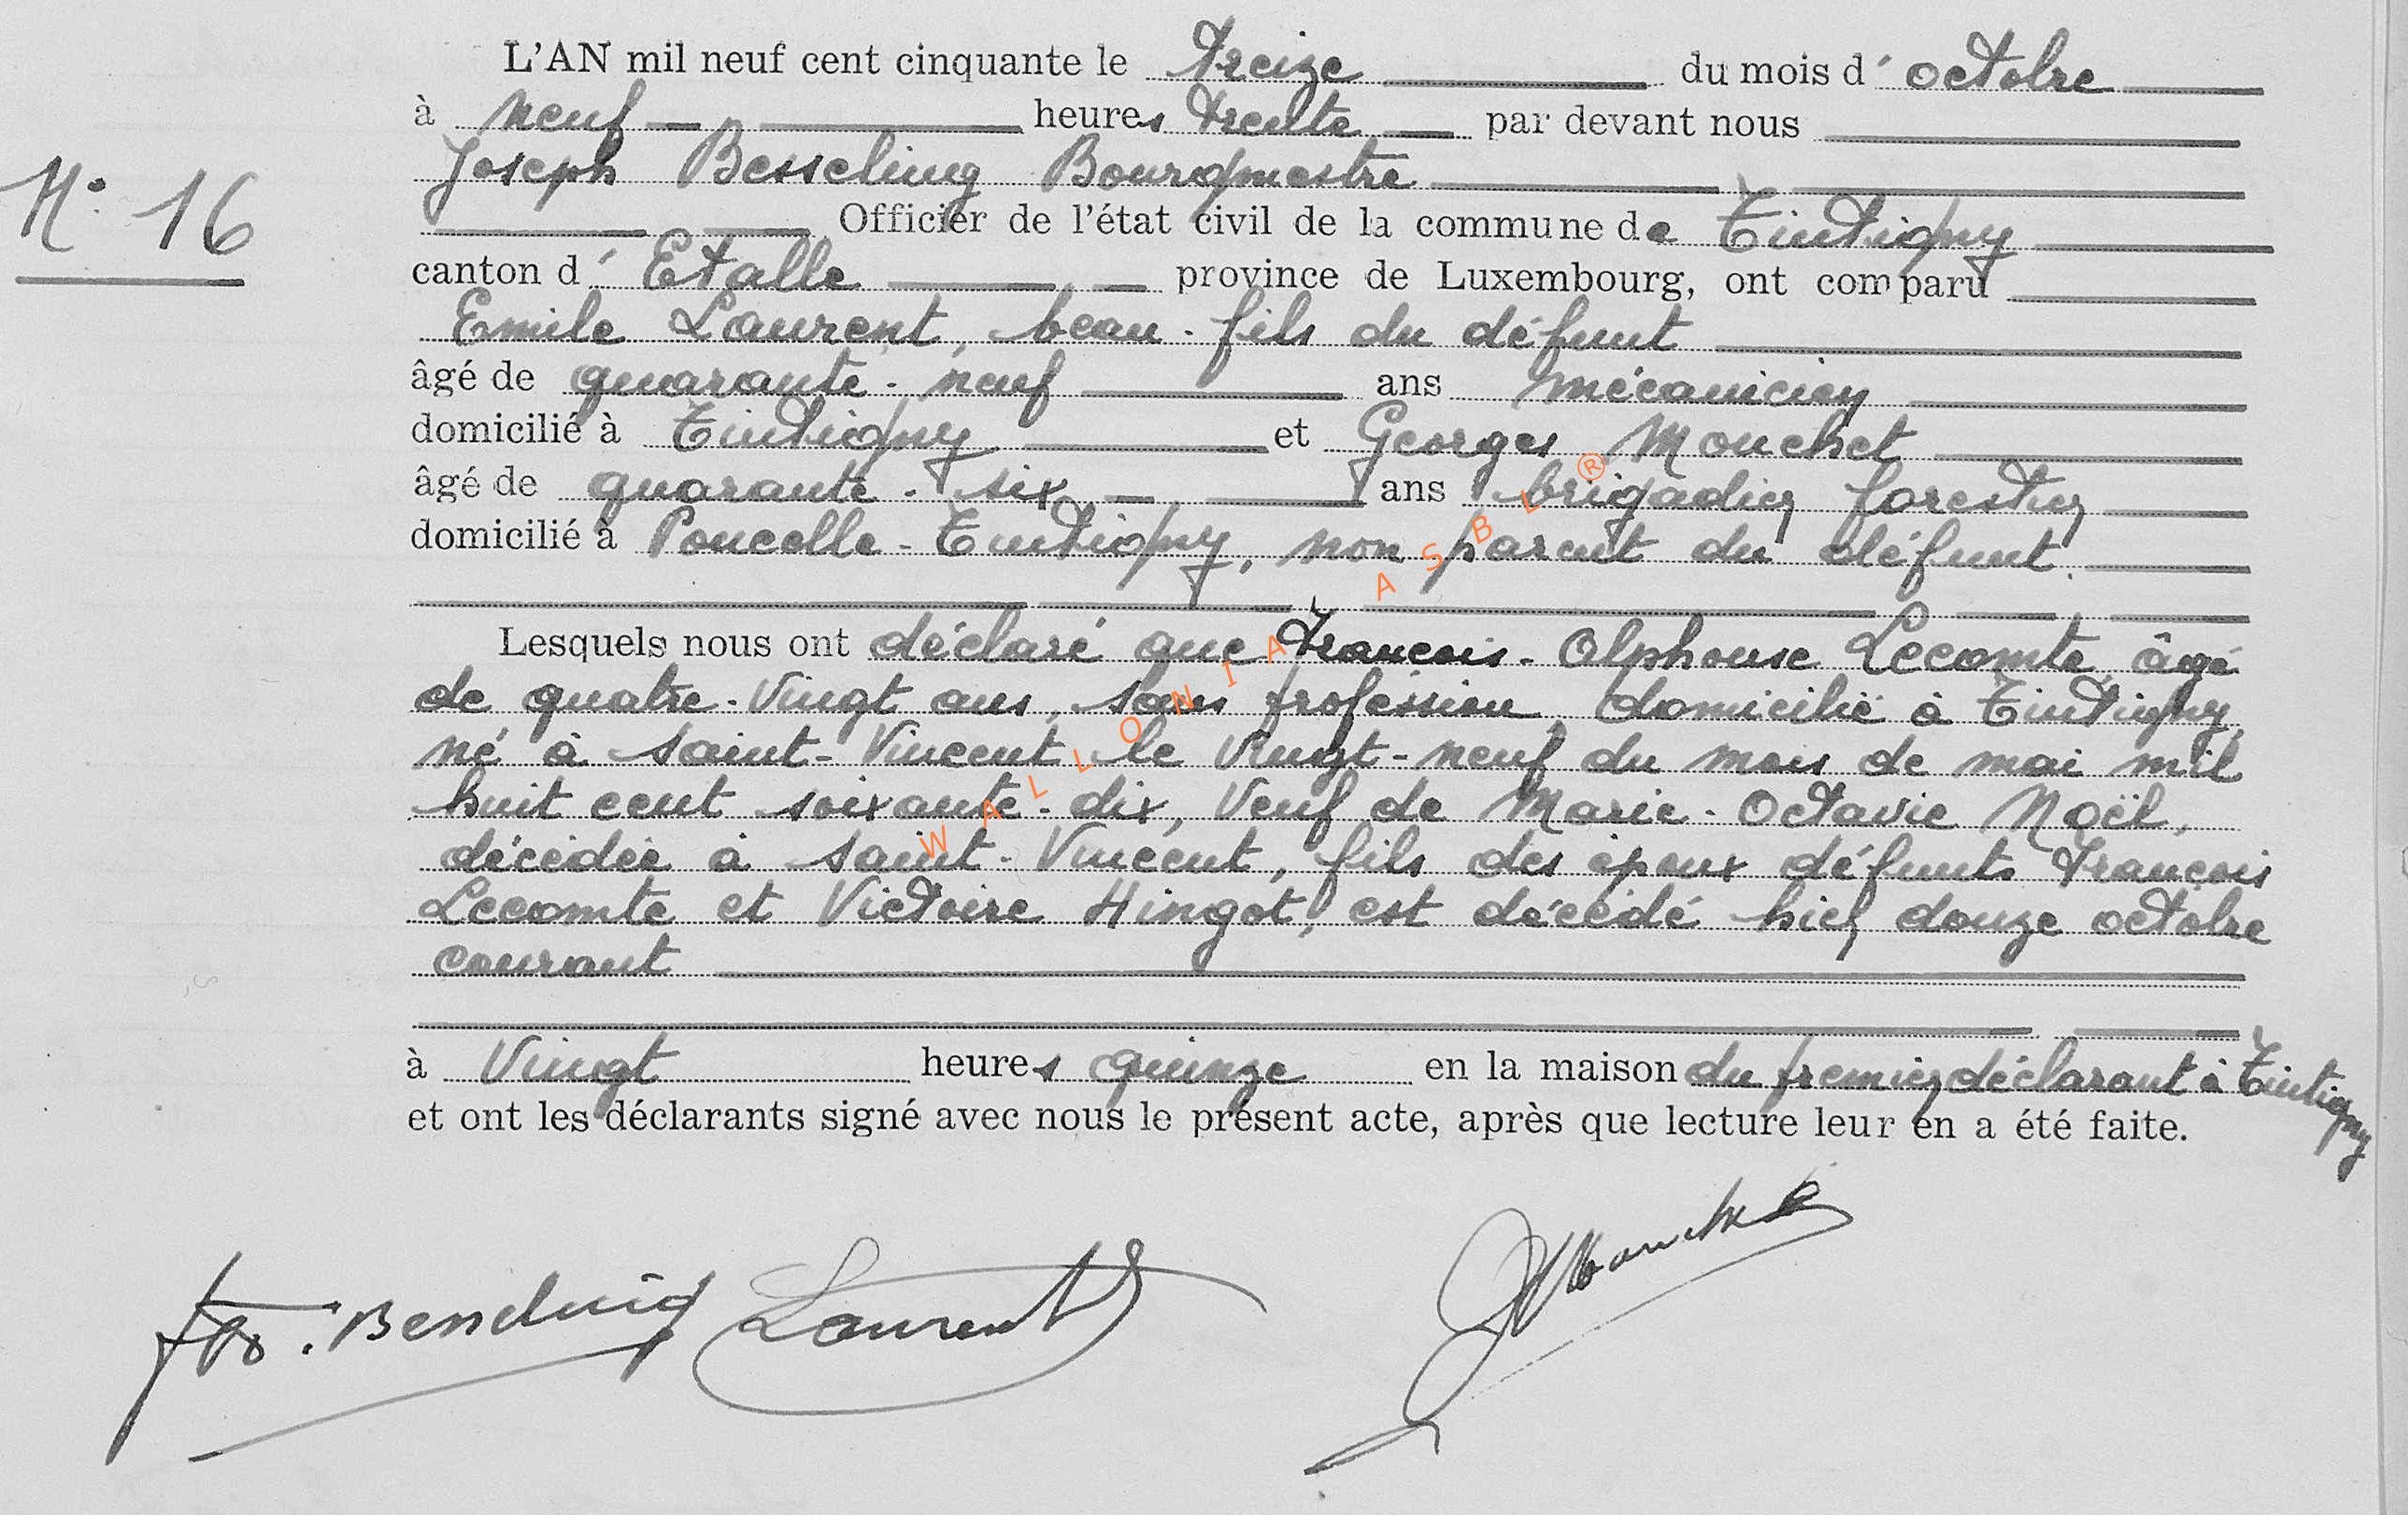 L'AN mil neuf cent cinquante le treize du mois d' octobre
à neuf heures trente par devant nous
N° 16
Joseph Besseling Bourgmestre
Officier de l'état civil de la commune de Tintigny
canton d' Etalle province de Luxembourg, ont comparu
Emile Laurent, beau-fils du défunt
âgé de quarante-neuf ans mécanicien
domicilié à Tintigny et Georges Mouchet
âgé de quarante-six ans brigadier forestier
domicilié à Poncelle-Tintigny, non parent du défunt.
Lesquels nous ont déclaré que François-Alphonse Lecomte, âgé
de quatre-vingt ans, sans profession, domicilié à Tintigny,
né à Saint-Vincent le vingt-neuf du mois de mai mil
huit cent soixante-dix, veuf de Marie-Octavie Noël,
décédée à Saint-Vincent, fils des époux défunts François
Lecomte et Victoire Hingot, est décédé hier douze octobre
courant
à vingt heures quinze en la maison du premier déclarant à Tintigny
et ont les déclarants signé avec nous le présent acte, après que lecture leur en a été faite.
Laurent
WALLONIA ASBL ®